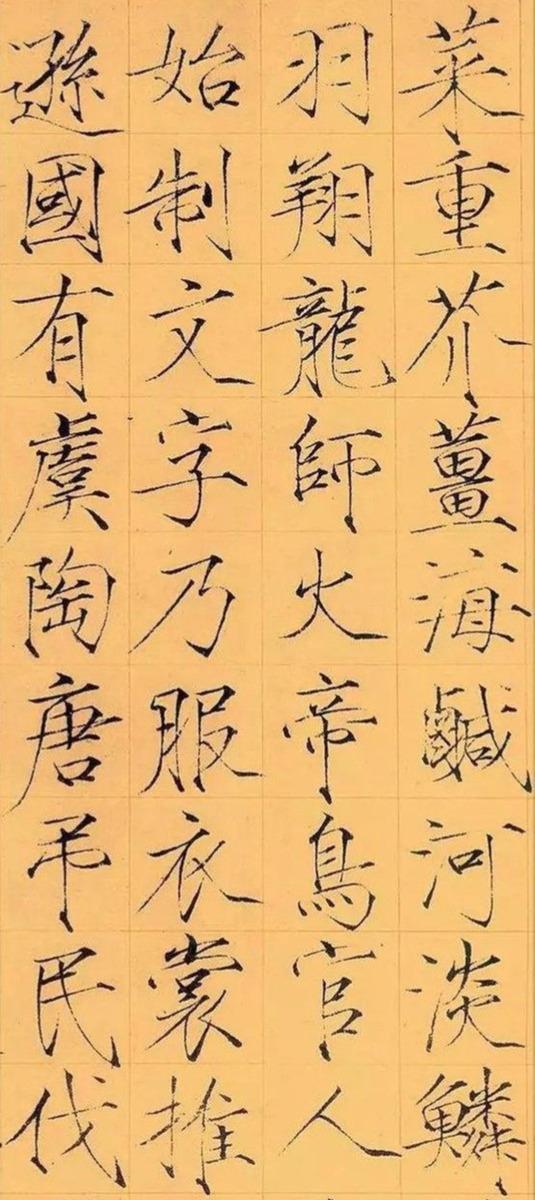 菜重芥薑海鹹河淡鱗
羽翔龍師火帝鳥官人
始制文字乃服衣裳推
遜國有虞陶唐吊民伐